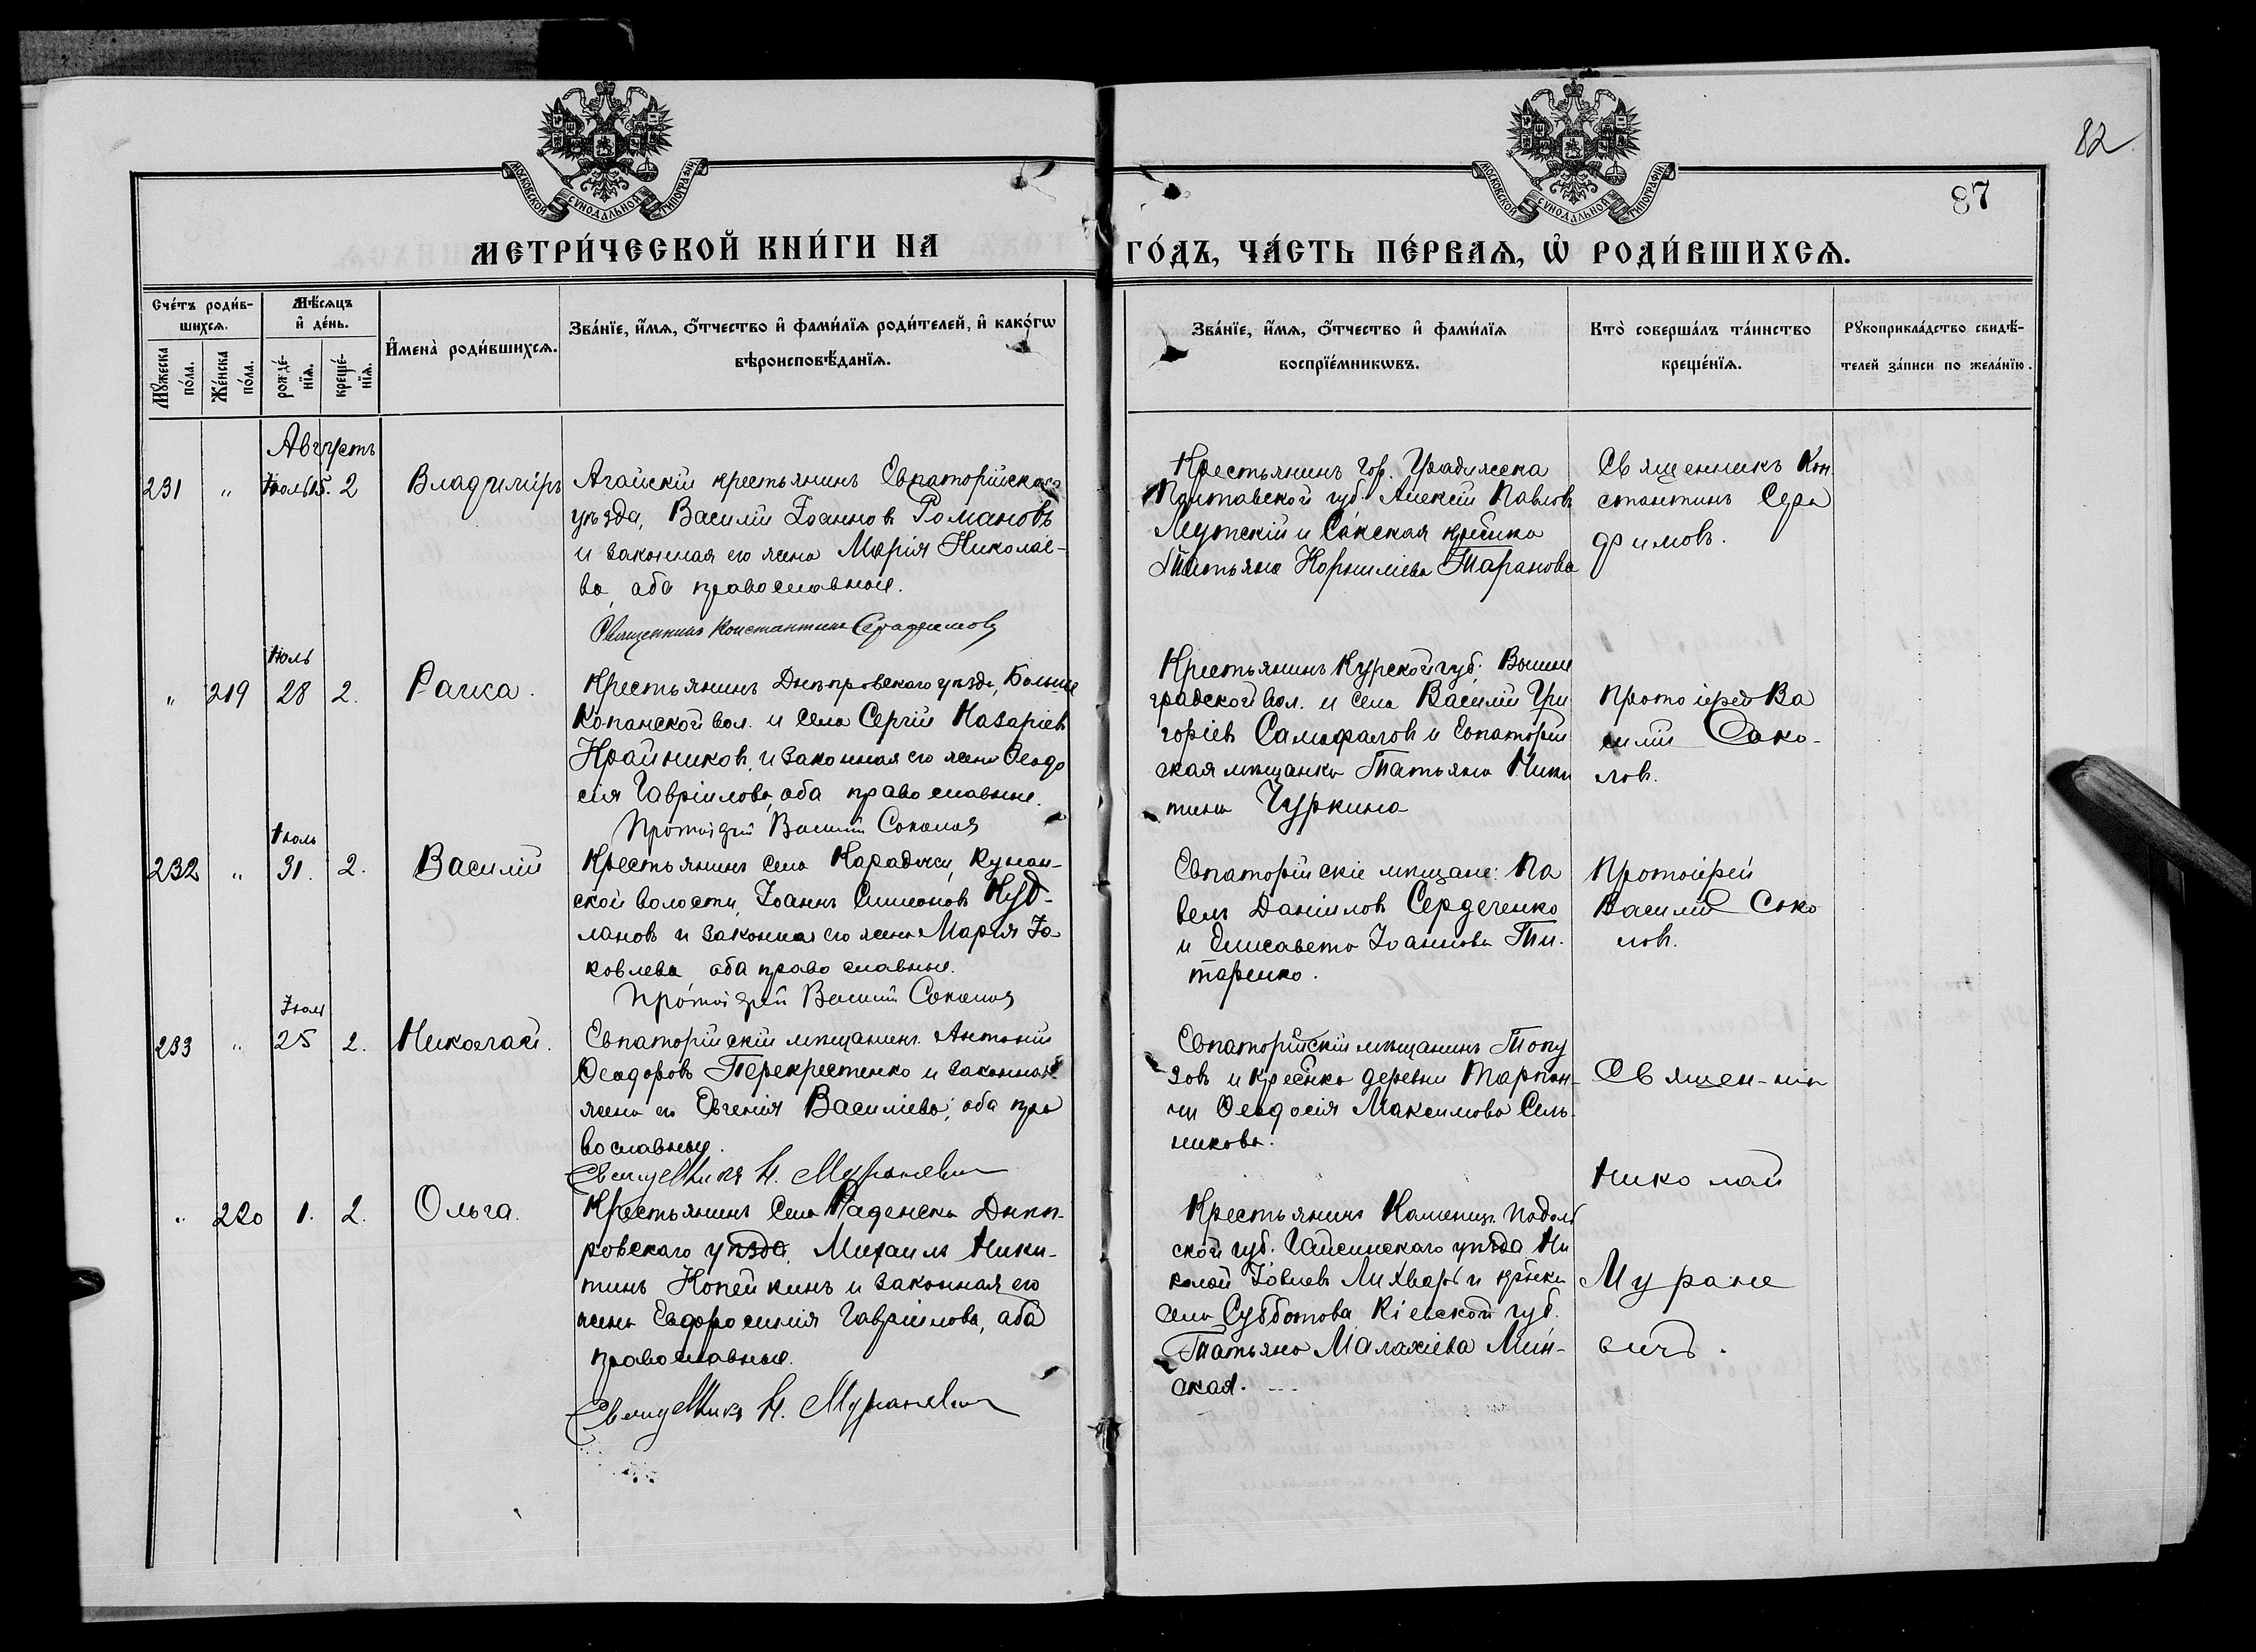 82
87
МОСКОВСКОЙ СѴНОДАЛЬНОЙ ТИПОГРАФІИ
МОСКОВСКОЙ СѴНОДАЛЬНОЙ ТИПОГРАФІИ
МЕТРИ́ЧЕСКОЙ КНИ́ГИ НА ГО́ДЪ, ЧА́СТЬ ПЕ́РВАѦ, Ѡ҆ РОДИ́ВШИХСѦ.
Сче́тъ роди́в-
шихсѧ.
Мꙋ́жеска по́ла.
Же́нска по́ла.
Мѣ́сѧцъ
и҆ де́нь.
рожде́-нїѧ.
креще́-нїѧ.
И҆мена̀ роди́вшихсѧ.
Зва́нїе, и҆́мѧ, ѻ҆́тчество и҆ фами́лїѧ роди́телей, и҆ како́гѡ
вѣроисповѣ́данїѧ.
Зва́нїе, и҆́мѧ, ѻ҆́тчество и҆ фами́лїѧ
воспрїе́мникѡвъ.
Кто̀ соверша́лъ та́инство
креще́нїѧ.
Рꙋкоприкла́дство свидѣ́-
телей за́писи по жела́нїю.
Августъ
231 " Іюль 15. 2 Владиміръ
Агайскій крестьянинъ Евпаторійскаго
уѣзда, Василій Іоанновъ Романовъ
и законная его жена Марія Николае-
ва, оба православные.
Священникъ Константинъ Серафимовъ
Крестьянинъ гор. Градижска
Полтавской губ. Алексій Павловъ
и Сакская
Татьяна Корниліева Таранова
Священникъ Кон
стантинъ Сера
фимовъ.
Іюль
" 219 28 2. Раиса.
Крестьянинъ Днѣпровскаго уѣзда, Больше
Копанской вол. и села Сергій Назаріевъ
Крайниковъ, и законная его жена Ѳеодо
сія Гавріилова, оба православные.
Протоіерей Василій Соколовъ
Крестьянинъ Курской губ. Выше
градской вол. и села Василій Гри
горіевъ и Евпаторій
ская мѣщанка Татьяна Ники
тина Чуркина
Протоіерей Ва
силій Соко-
ловъ.
Іюль
232 " 31. 2. Василій
Крестьянинъ села Караджи, Кунан-
ской волости, Іоаннъ Симеоновъ Куд-
лановъ и законная его жена Марія Іа
ковлева оба православные.
Протоіерей Василій Соколовъ
Евпаторійскіе мѣщане: Па
велъ Даніиловъ Сердеченко
и Елисавета Іоаннова Ти-
таренко.
Протоіерей
Василій Соко
ловъ.
Іюль
233 " 25 2. Николай.
Евпаторійскій мѣщанинъ Антоній
Ѳеодоровъ Перекрестенко и законная
жена его Евгенія Василіева; оба пра
вославные.
Священникъ Н. Мураневичъ
Евпаторійскій мѣщанинъ Топу
зовъ и кр-ка деревни Тарпан-
чи Ѳеодосія Максимова Сель-
никова.
Священ-никъ
Николай
Муране
вичъ.
" 220 1. 2. Ольга.
Крестьянинъ села Раденска Днѣп-
ровскаго уѣзда, Михаилъ Ники-
тинъ Копейкинъ и законная его
жена Евфросинія Гавріилова, оба
православные.
Священникъ Н. Мураневичъ
Крестьянинъ Каменец. Подоль
ской губ. Гайсинскаго уѣзда Ни
колай Іовлевъ Лихварь и кр-ка
села Субботова Кіевской губ.
Татьяна Малахіева Мин-
ская.